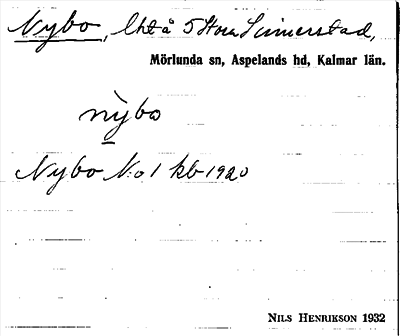 Nybo, lht å 5 Stora Linnerstad,
Mörlunda sn, Aspelands hd, Kalmar län.
nỳbo
Nybo N:o 1 kb 1920
NILS HENRIKSON 1932